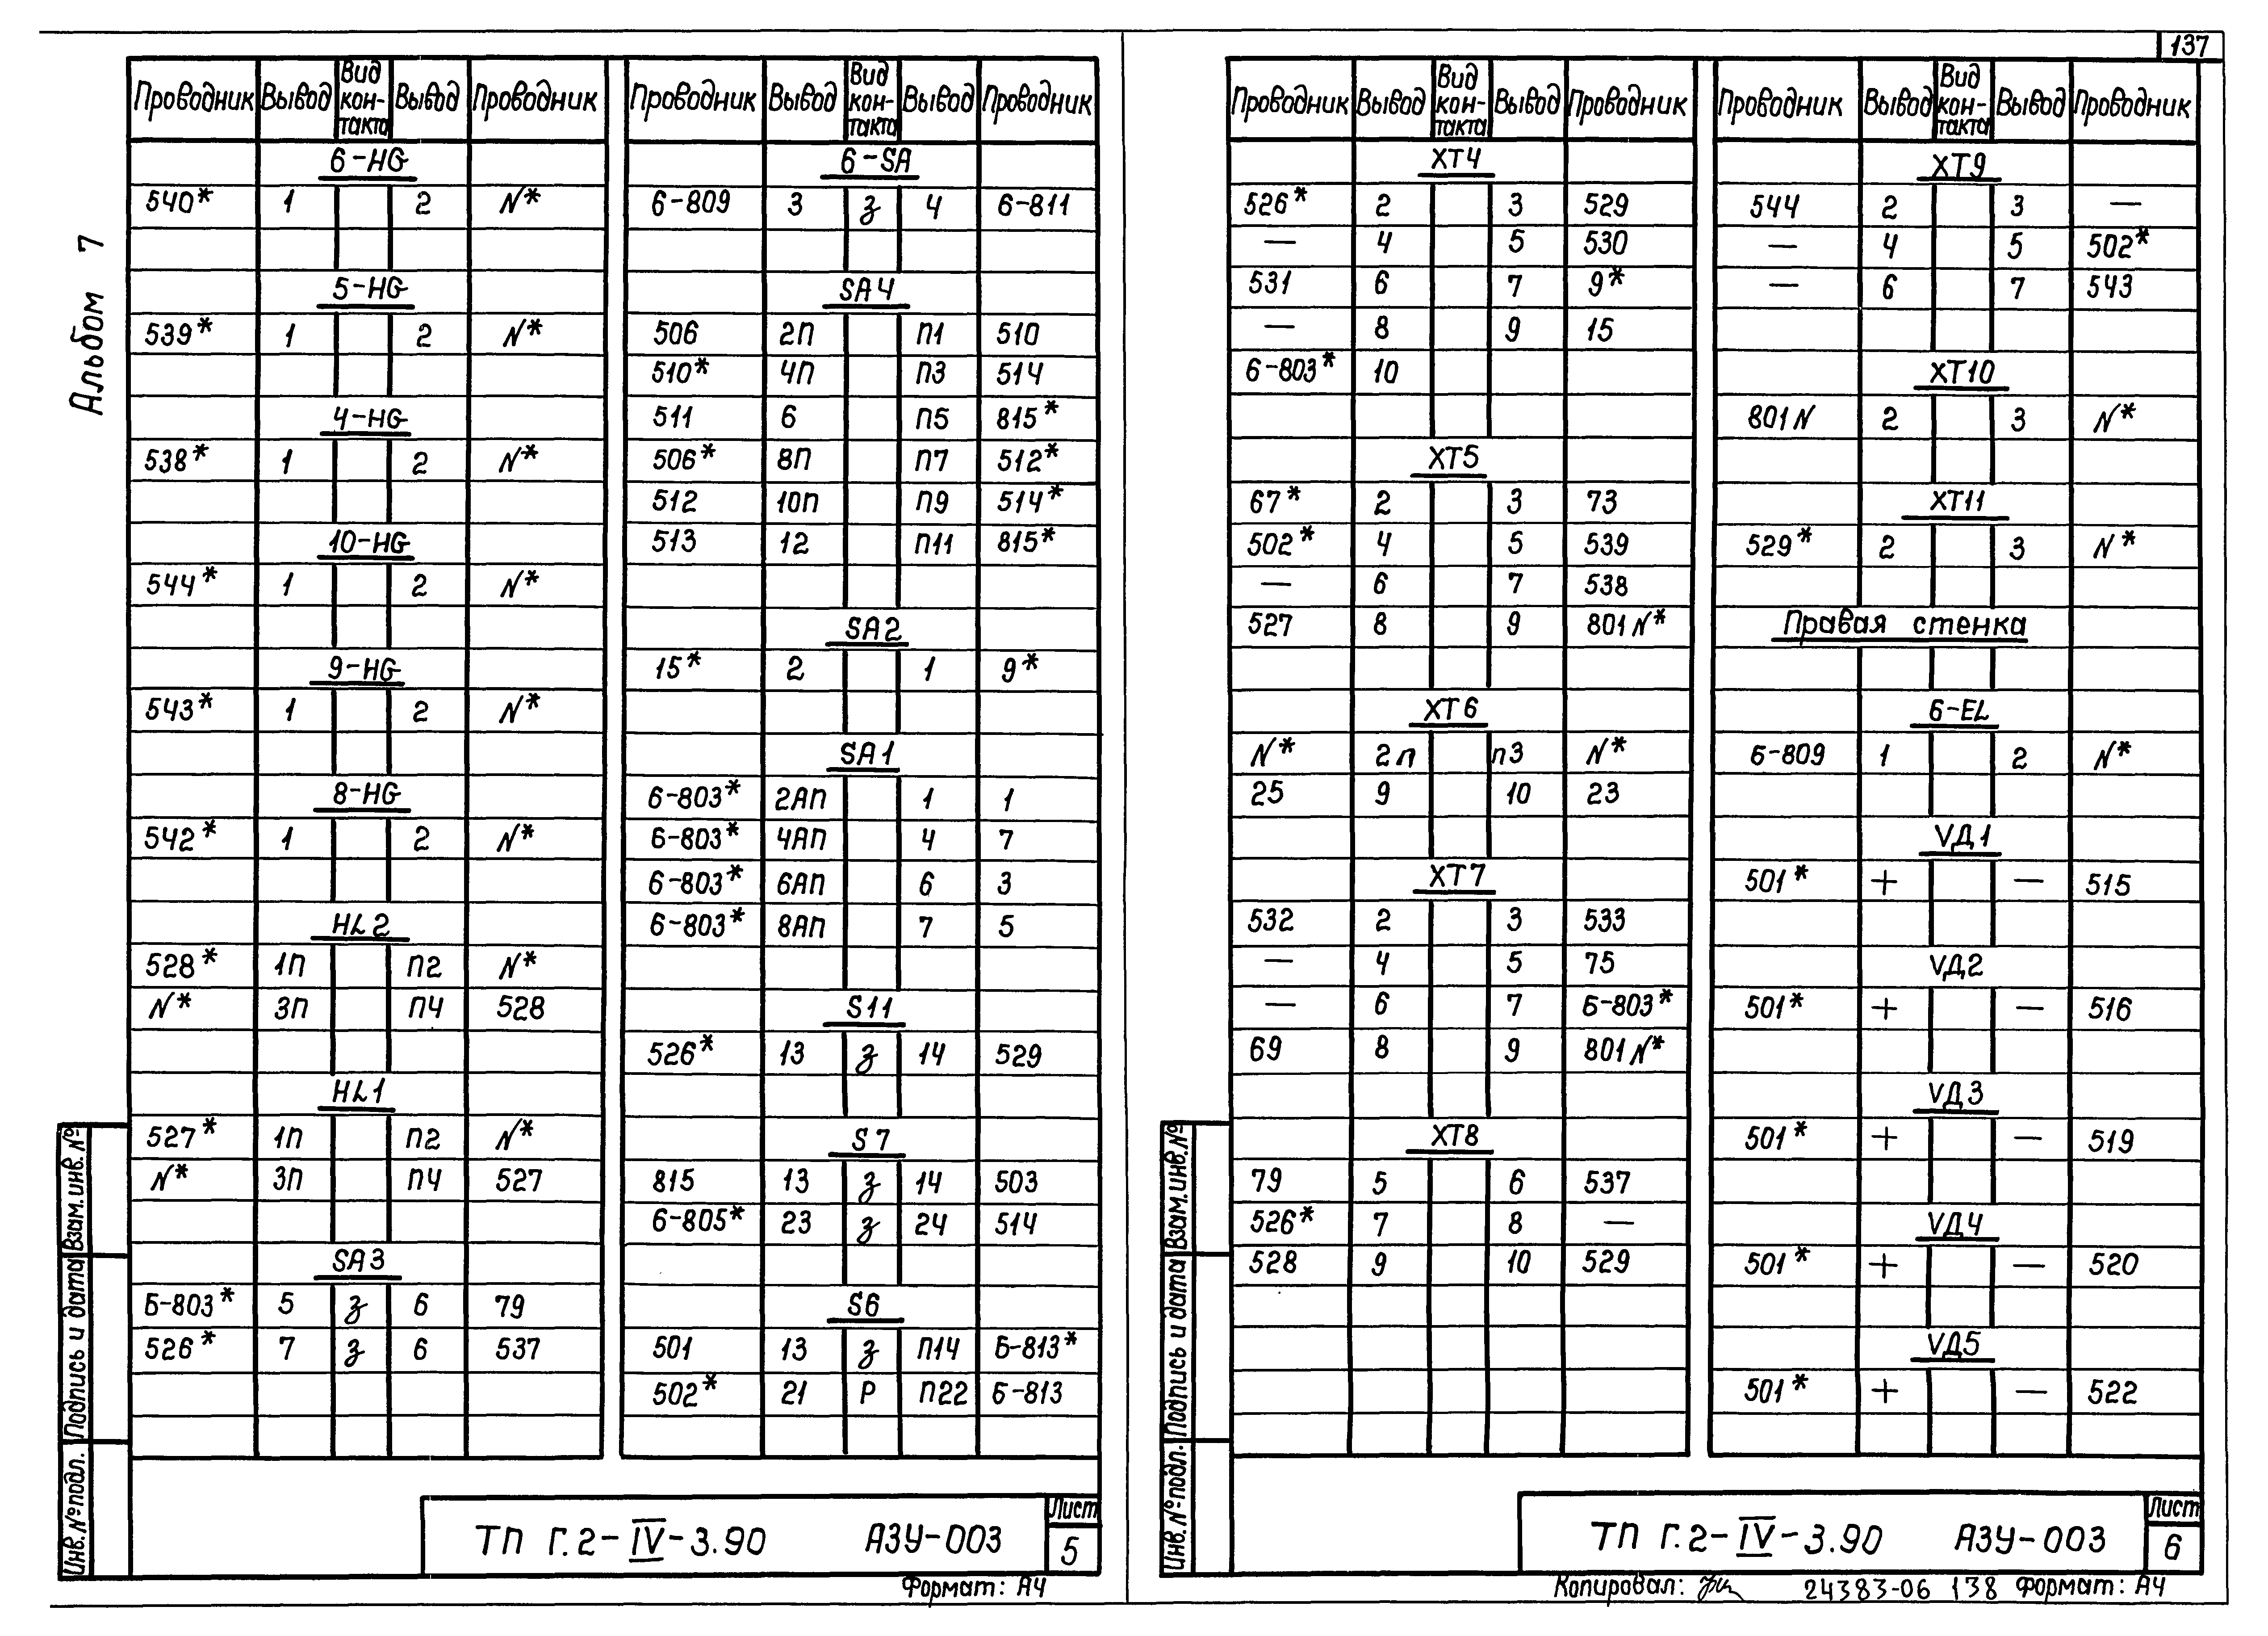 137
Альбом 7
Проводник Вывод Вид кон-такта Вывод Проводник
6-HG
540* 1 2 N*
5-HG
539* 1 2 N*
4-HG
538* 1 2 N*
10-HG
544* 1 2 N*
9-HG
543* 1 2 N*
8-HG
542* 1 2 N*
HL2
528* 1П П2 N*
N* 3П П4 528
HL1
527* 1П П2 N*
N* 3П П4 527
SA3
Б-803* 5 з 6 79
526* 7 з 6 537
Проводник Вывод Вид кон-такта Вывод Проводник
6-SA
6-809 3 з 4 6-811
SA4
506 2П П1 510
510* 4П П3 514
511 6 П5 815*
506* 8П П7 512*
512 10П П9 514*
513 12 П11 815*
SA2
15* 2 1 9*
SA1
6-803* 2АП 1 1
6-803* 4АП 4 7
6-803* 6АП 6 3
6-803* 8АП 7 5
S11
526* 13 з 14 529
S7
815 13 з 14 503
6-805* 23 з 24 514
S6
501 13 з П14 Б-813*
502* 21 Р П22 Б-813
Инв. № подл. Подпись и дата Взам. инв. №
ТП Г.2-IV-3.90 АЗУ-003
Лист
5
Формат: А4
Проводник Вывод Вид кон-такта Вывод Проводник
XT4
526* 2 3 529
— 4 5 530
531 6 7 9*
— 8 9 15
6-803* 10
XT5
67* 2 3 73
502* 4 5 539
— 6 7 538
527 8 9 801N*
XT6
N* 2п п3 N*
25 9 10 23
XT7
532 2 3 533
— 4 5 75
— 6 7 Б-803*
69 8 9 801N*
XT8
79 5 6 537
526* 7 8 —
528 9 10 529
Проводник Вывод Вид кон-такта Вывод Проводник
XT9
544 2 3 —
— 4 5 502*
— 6 7 543
XT10
801N 2 3 N*
XT11
529* 2 3 N*
Правая стенка
6-EL
Б-809 1 2 N*
VД1
501* + — 515
VД2
501* + — 516
VД3
501* + — 519
VД4
501* + — 520
VД5
501* + — 522
Инв. № подл. Подпись и дата Взам. инв. №
ТП Г.2-IV-3.90 АЗУ-003
Лист
6
Копировал: 24383-06 138 Формат: А4